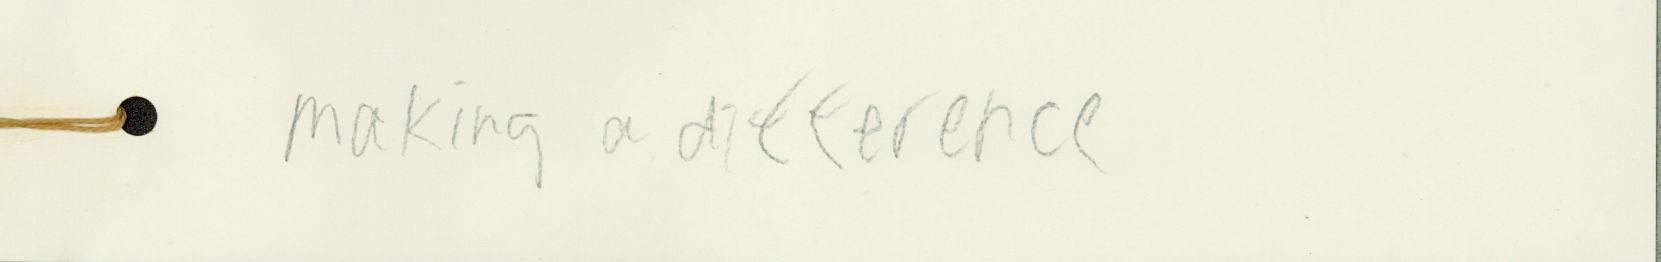 making a difference